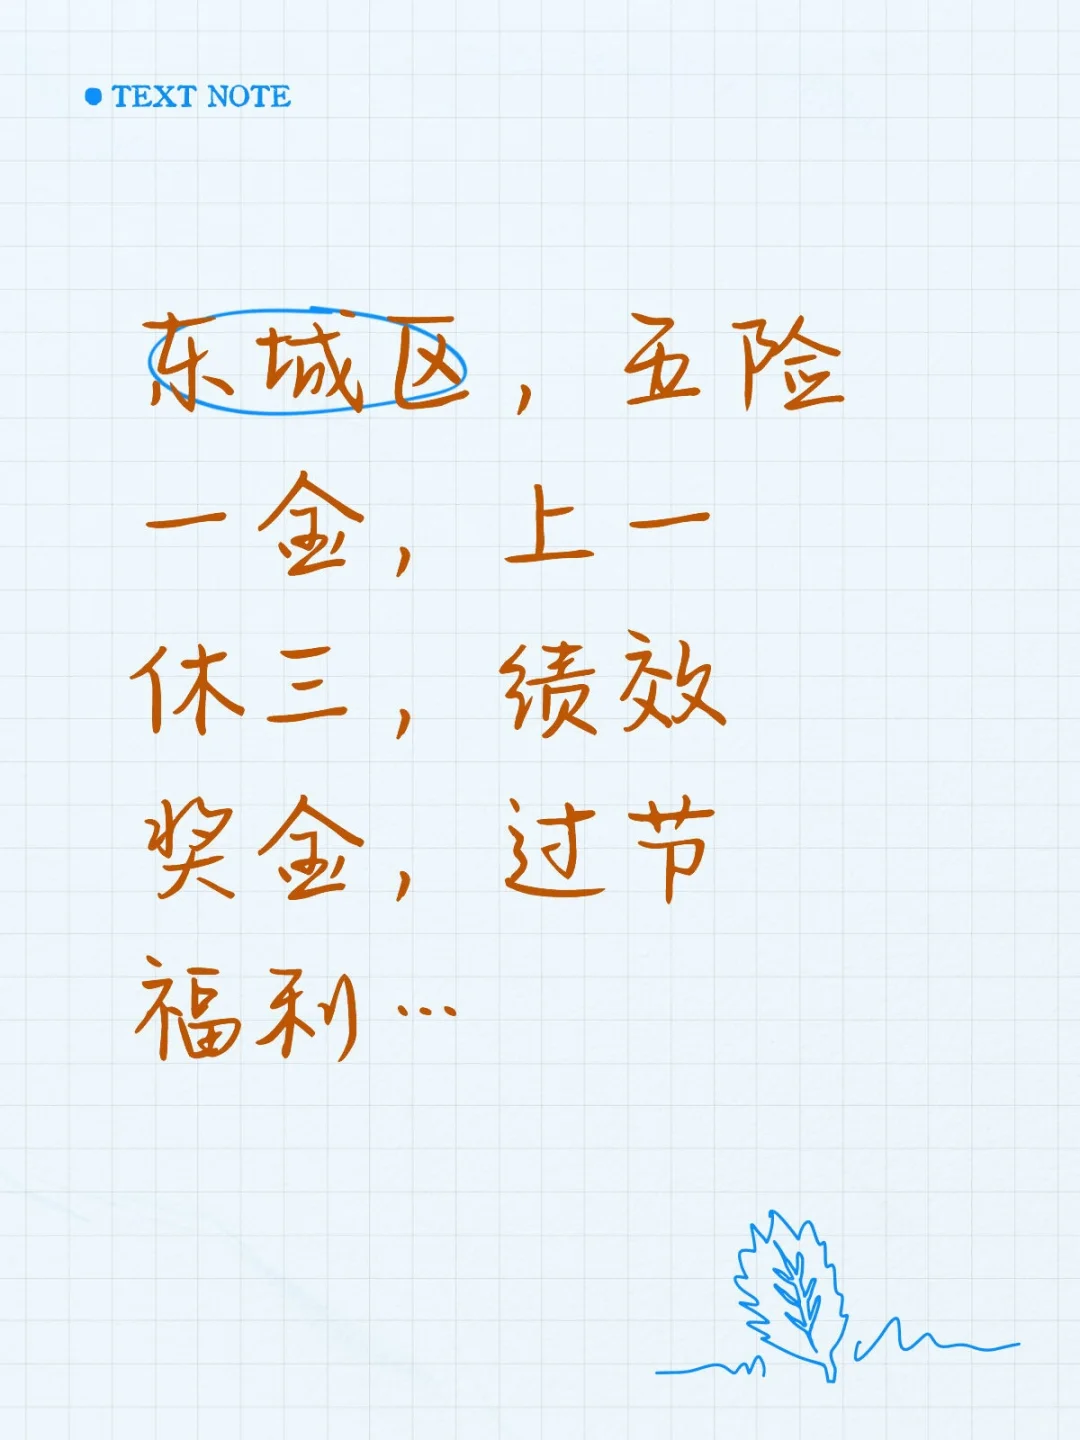 TEXT NOTE
东城区，五险
一金，上一
休三，绩效
奖金，过节
福利…